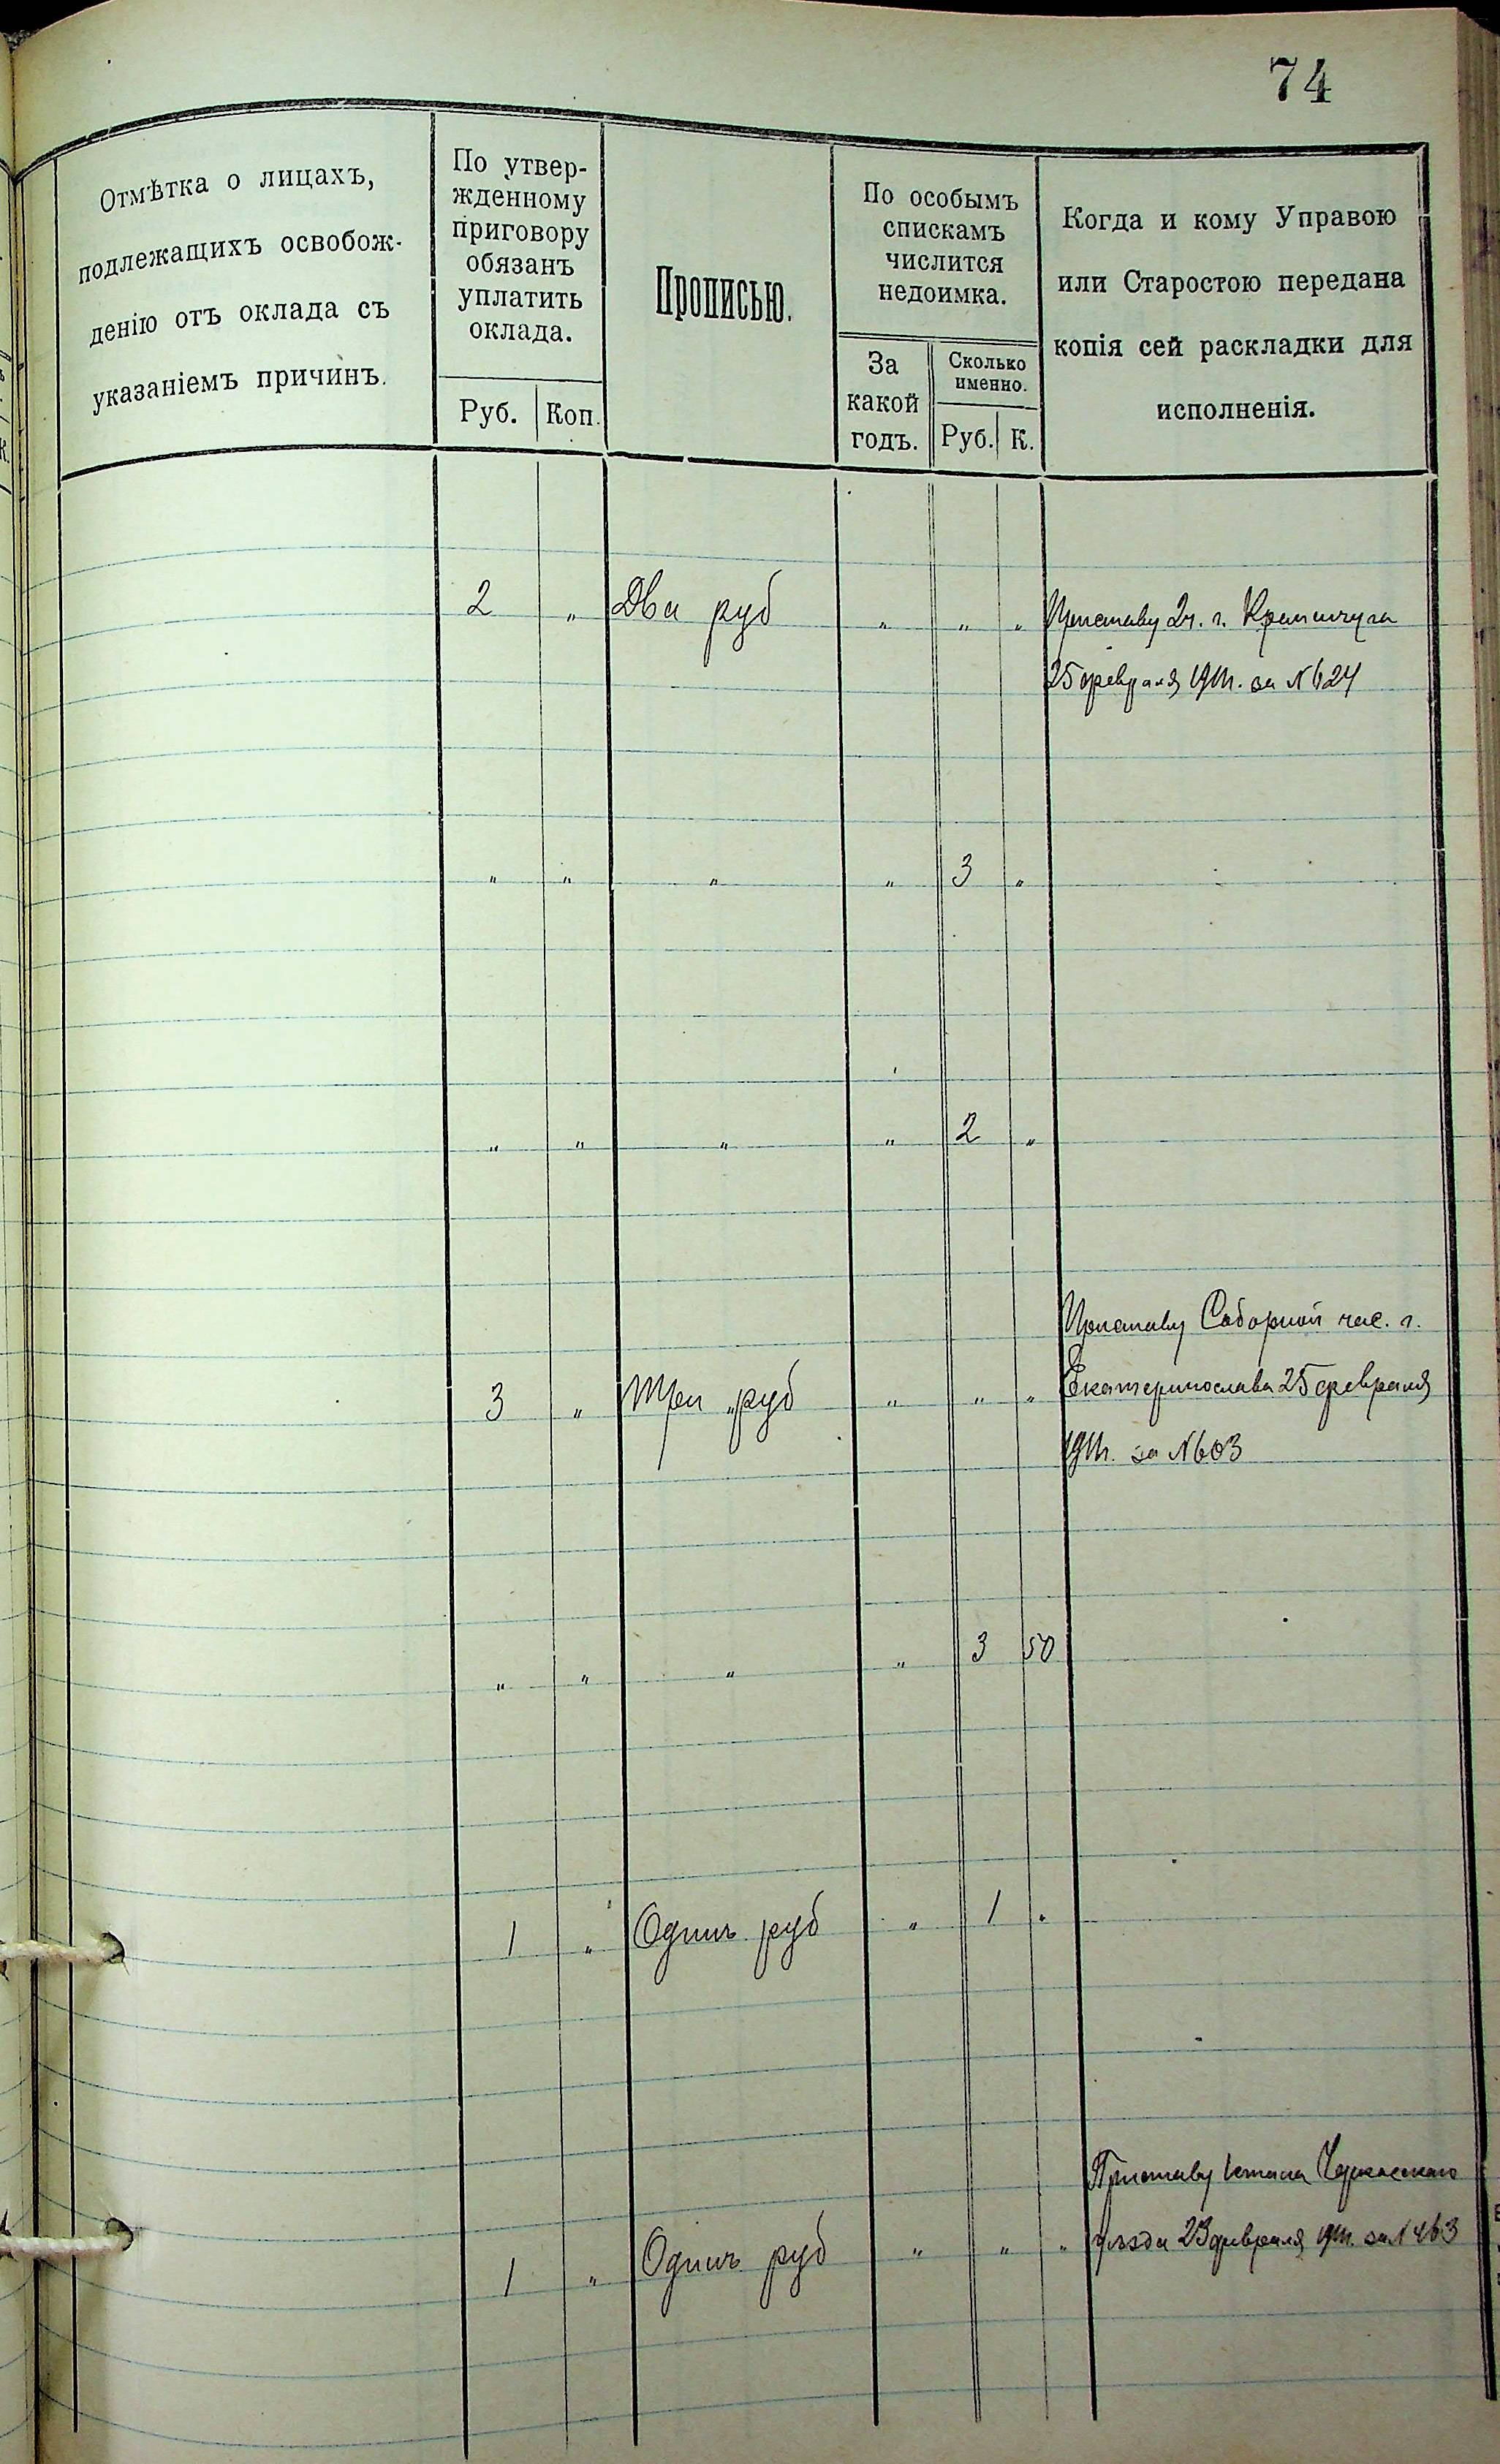 74
Отмѣтка о лицахъ,
подлежащихъ освобож-
денію отъ оклада съ
указаніемъ причинъ.
По утвер-
жденному
приговору
обязанъ
уплатить
оклада.
Руб. Коп.
Прописью.
По особымъ
спискамъ
числится
недоимка.
За
какой
годъ.
Сколько
именно.
Руб. К.
Когда и кому Управою
или Старостою передана
копія сей раскладки для
исполненія.
2 " Два руб " " " Приставу 2ч. г. Кременчуга
25 февраля 191 г. за № 624
" " " " 3 "
" " " " 2 "
Приставу Соборной час. г.
3 " Три руб " " " Екатеринослава 25 февраля
за № 603
" " " " 3 50
1 " Одинъ руб " 1 "
Приставу 1 стана Черкасскаго
1 " Одинъ руб " " " уѣзда 23 февраля за № 463